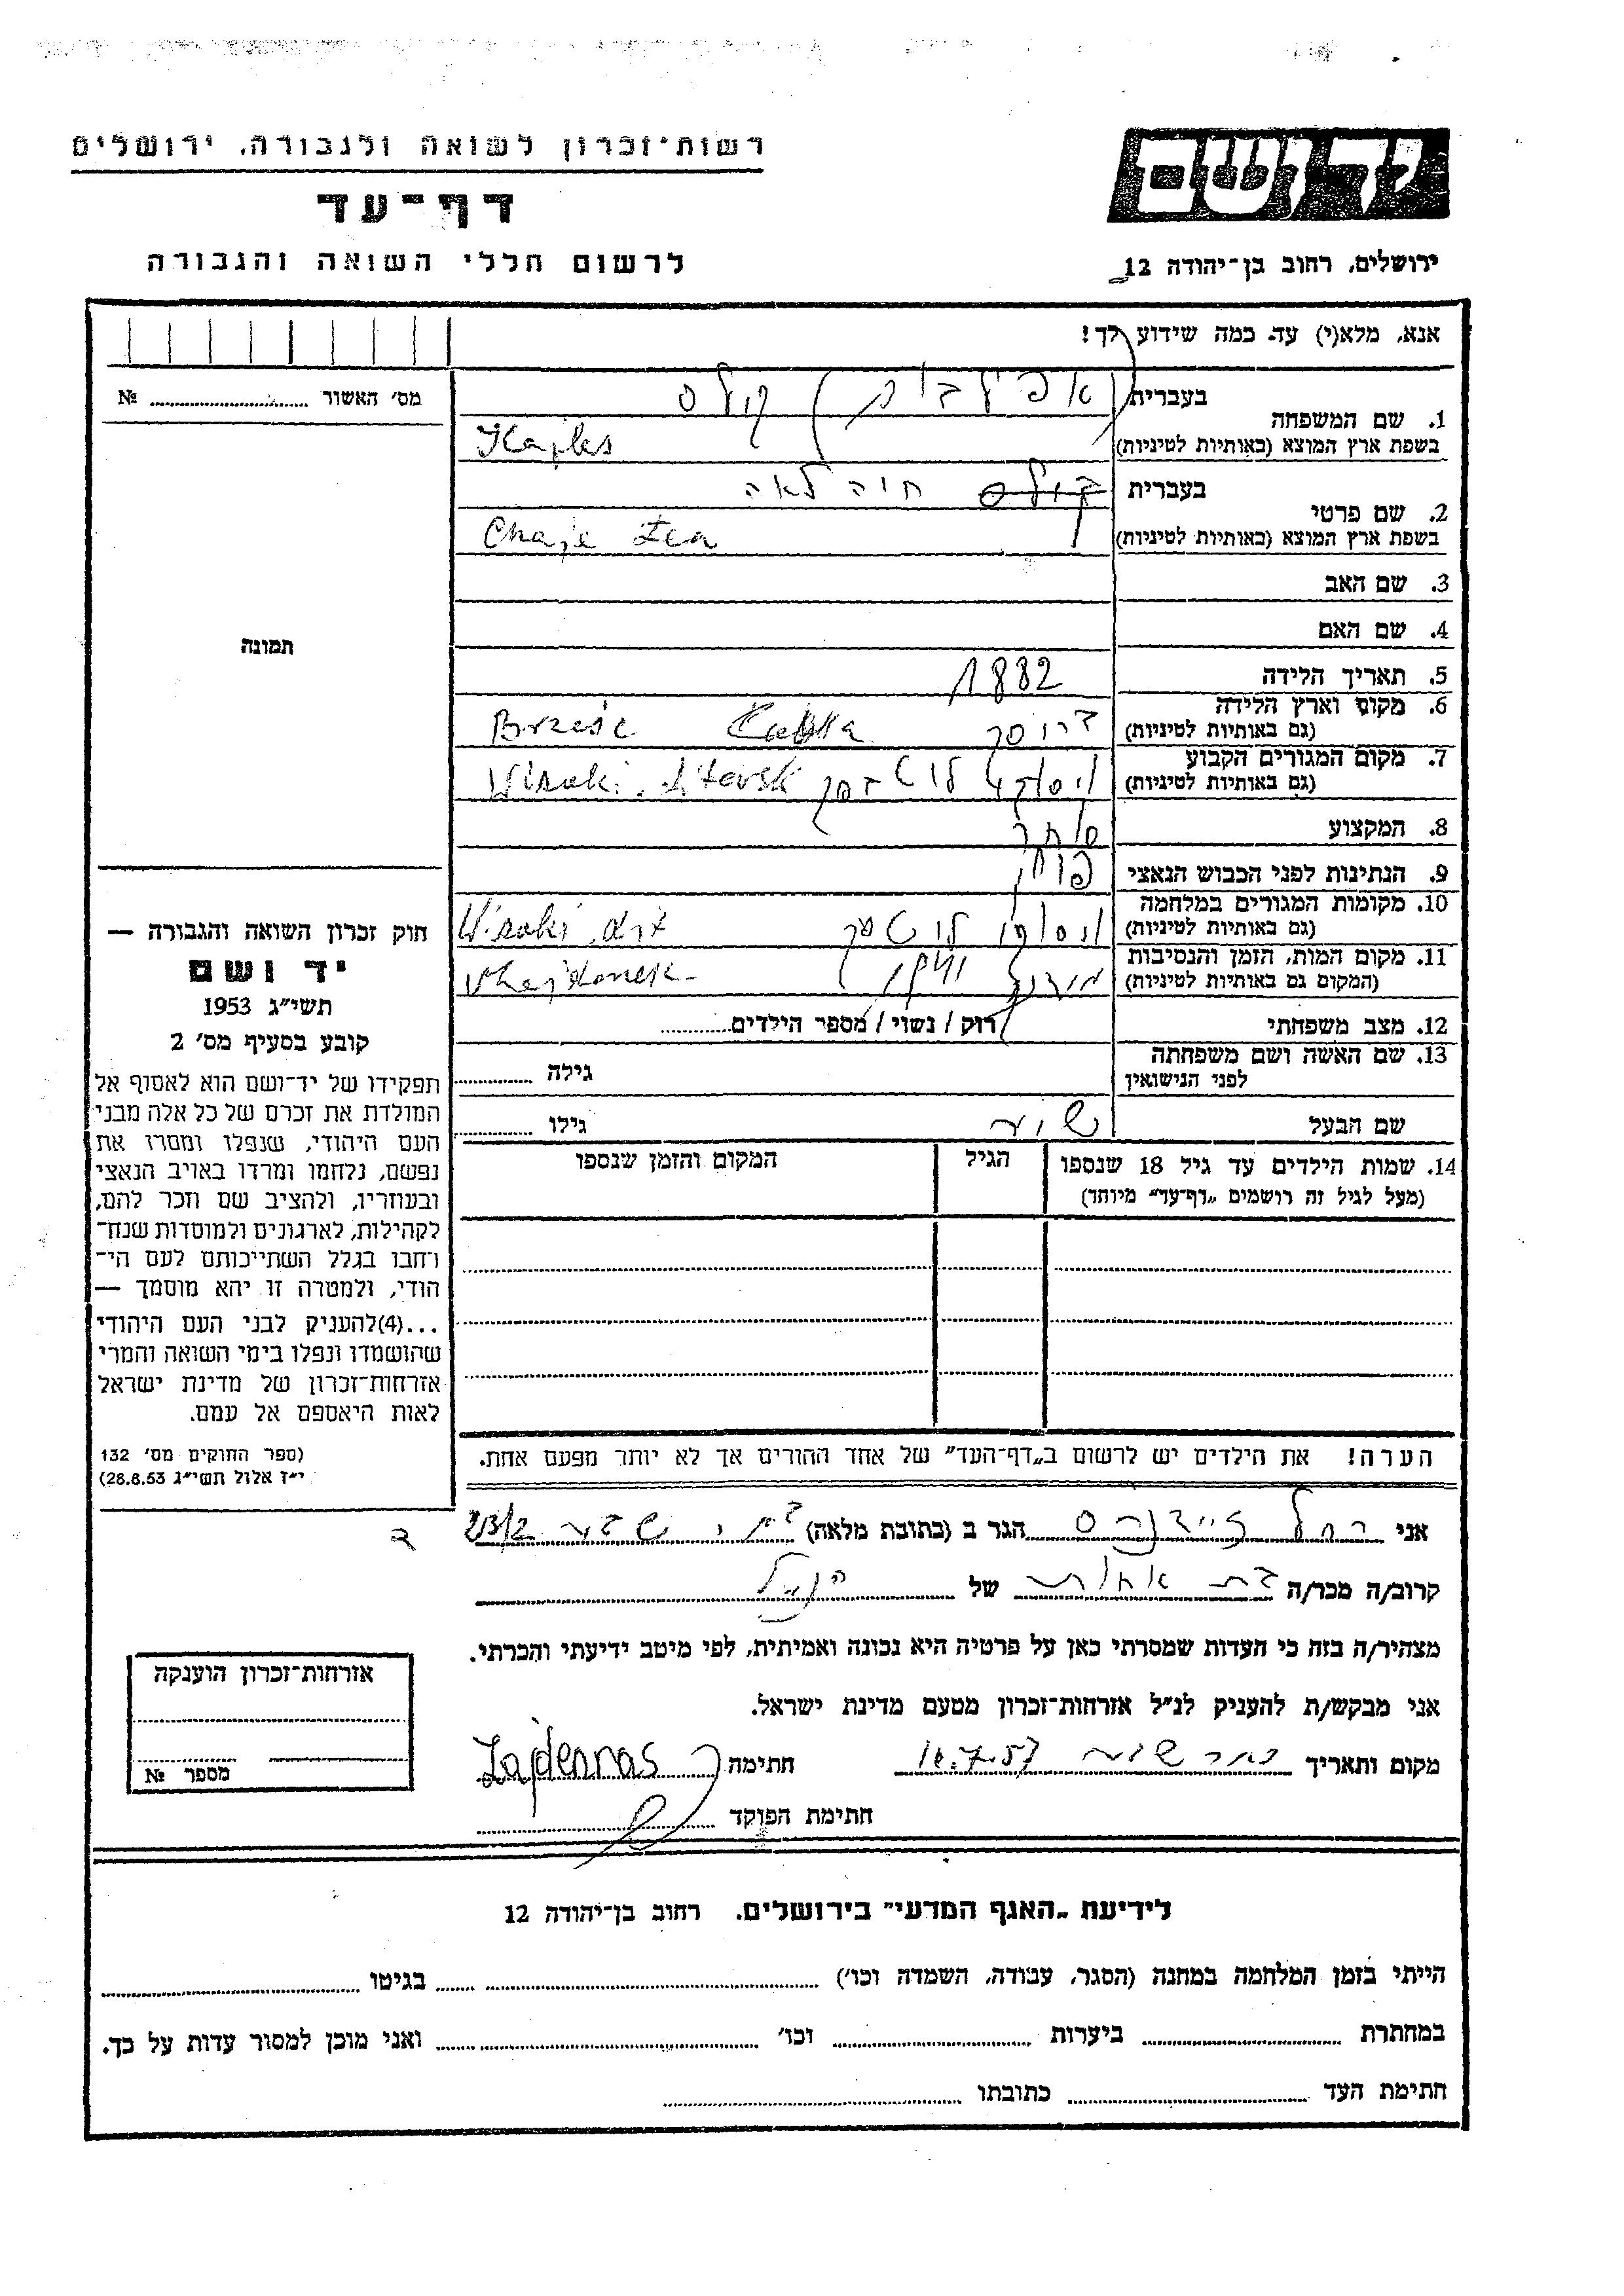 רשות־זכרון לשואה ולגבורה. ירושלים
יד ושם
דף־עד
לרשום חללי השואה והגבורה
ירושלים, רחוב בן־יהודה 12
אנא, מלא(י) עד כמה שידוע לך!
מס׳ האשור № ........
1. שם המשפחה
בעברית
קולס
בשפת ארץ המוצא (באותיות לטיניות)
Kajles
2. שם פרטי
בעברית
חיה לאה
בשפת ארץ המוצא (באותיות לטיניות)
Chaje Lea
3. שם האב
4. שם האם
תמונה
5. תאריך הלידה
1882
6. מקום וארץ הלידה
(גם באותיות לטיניות)
Brześć
7. מקום המגורים הקבוע
(גם באותיות לטיניות)
Wisoki. Litovsk
8. המקצוע
סוחר
9. הנתינות לפני הכבוש הנאצי
10. מקומות המגורים במלחמה
(גם באותיות לטיניות)
Wisoki
11. מקום המות, הזמן והנסיבות
(המקום גם באותיות לטיניות)
Majdanek
12. מצב משפחתי
רוק / נשוי / מספר הילדים........
13. שם האשה ושם משפחתה
לפני הנישואין
גילה ........
שם הבעל
גילו ........
14. שמות הילדים עד גיל 18 שנספו
(מעל לגיל זה רושמים „דף־עד״ מיוחד)
הגיל
המקום והזמן שנספו
חוק זכרון השואה והגבורה —
יד ושם
תשי״ג 1953
קובע בסעיף מס׳ 2
תפקידו של יד־ושם הוא לאסוף אל
המולדת את זכרם של כל אלה מבני
העם היהודי, שנפלו ומסרו את
נפשם, נלחמו ומרדו באויב הנאצי
ובעוזריו, ולהציב שם וזכר להם,
לקהילות, לארגונים ולמוסדות שנח־
רחבו בגלל השתייכותם לעם הי־
הודי, ולמטרה זו יהא מוסמך —
...(4)להעניק לבני העם היהודי
שהושמדו ונפלו בימי השואה והמרי
אזרחות־זכרון של מדינת ישראל
לאות היאספם אל עמם.
(ספר החוקים מס׳ 132
י״ז אלול תשי״ג 28.8.53)
הערה! את הילדים יש לרשום ב„דף־העד״ של אחד ההורים אך לא יותר מפעם אחת.
אני רחל זיידנרס הגר ב (כתובת מלאה)
קרוב/ה מכר/ה בת אחות של הנ״ל
מצהיר/ה בזה כי העדות שמסרתי כאן על פרטיה היא נכונה ואמיתית, לפי מיטב ידיעתי והכרתי.
אני מבקש/ת להעניק לנ״ל אזרחות־זכרון מטעם מדינת ישראל.
מקום ותאריך באר שבע 16.7.57 חתימה Zajdenras
חתימת הפוקד
אזרחות־זכרון הוענקה
מספר №
לידיעת „האגף המדעי״ בירושלים. רחוב בן־יהודה 12
הייתי בזמן המלחמה במחנה (הסגר, עבודה, השמדה וכו׳) ........ בגיטו ........
במחתרת ........ ביערות ........ וכו׳ ........ ואני מוכן למסור עדות על כך.
חתימת העד ........ כתובתו ........